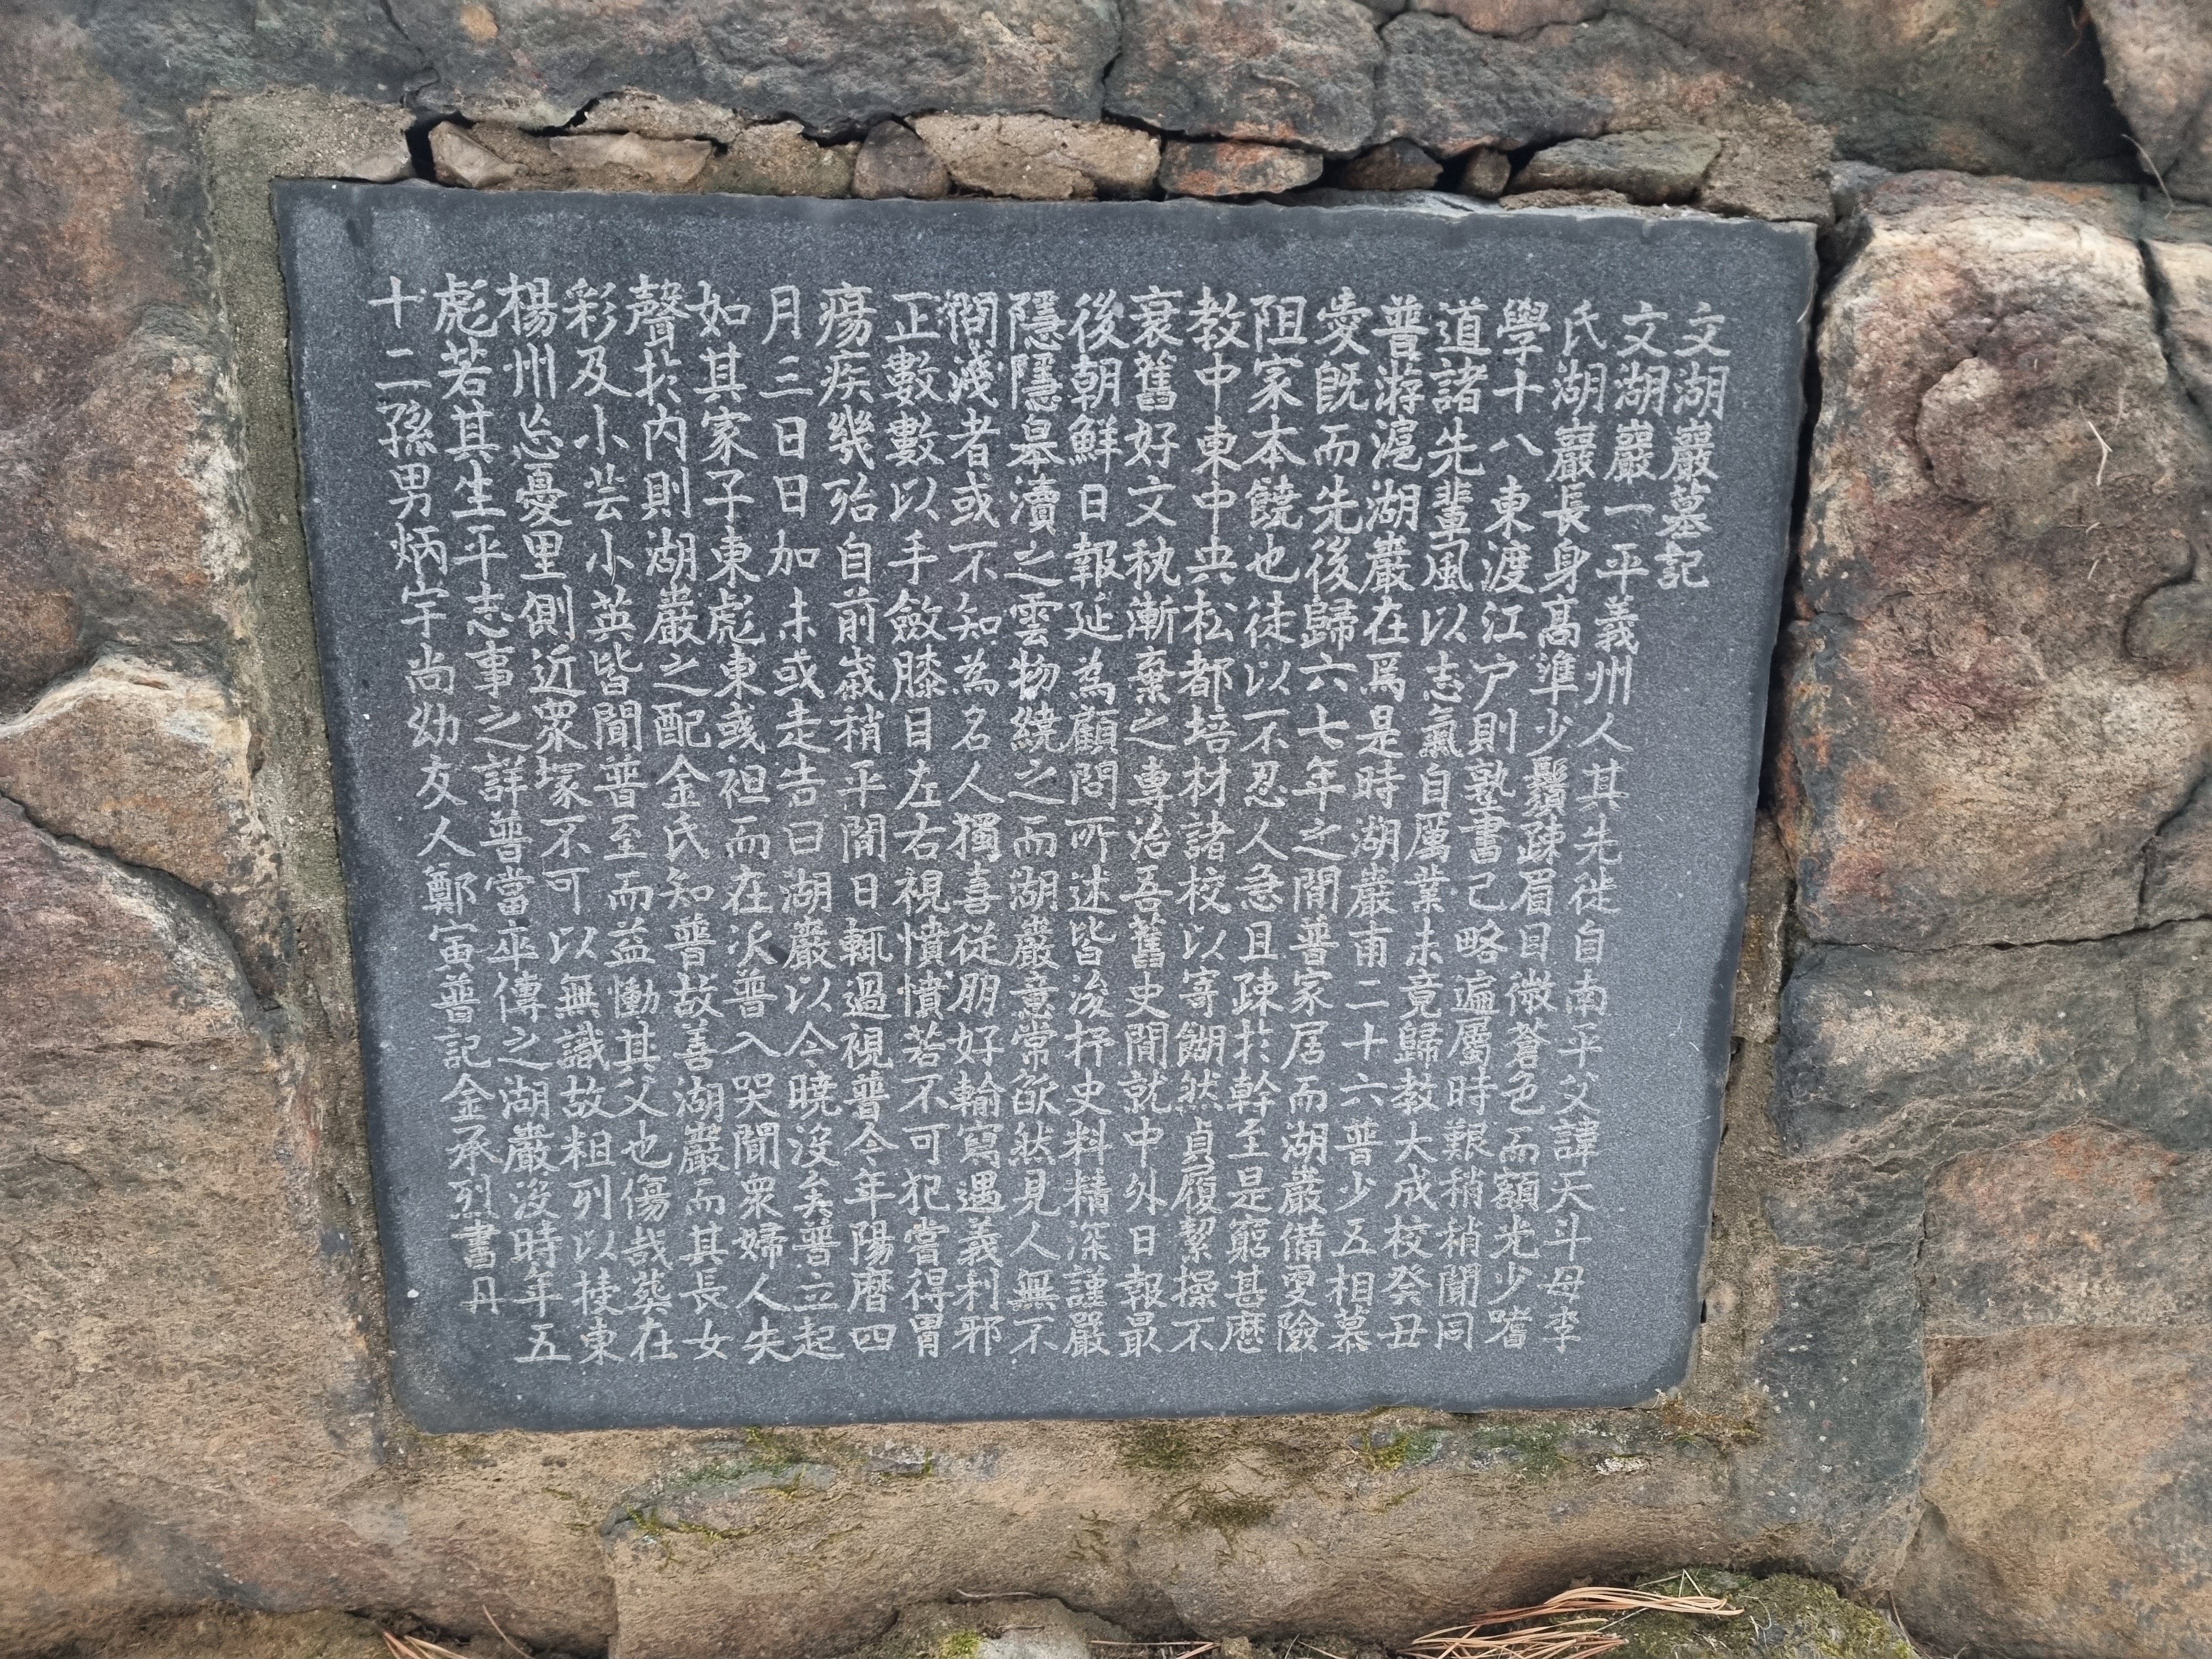 文湖巖墓記
文湖巖一平義州人其先徙自南平父諱天斗母李
氏湖巖長身高準少鬚疎眉目微蒼色而額光少嗜
學十八東渡江户則塾書已略遍屬時艱稍稍聞同
道諸先輩風以志氣自厲業未竟歸教大成校癸丑
普游滬湖巖在焉是時湖巖甫二十六普少五相慕
愛既而先後歸六七年之間普家居而湖巖備更險
阻家本饒也徒以不忍人急且疎於幹至是窮甚歷
教中東中央松都培材諸校以寄餬然貞履絜操不
衰舊好文執漸棄之專治吾舊史間就中外日報最
後朝鮮日報延為顧問所述皆浚抒史料精深謹嚴
隱隱皋瀆之雲物繞之而湖巖意常欿然見人無不
淺者或不知為名人獨喜從朋好輸寫遇義利邪
正數數以手斂膝目左右視憤憤若不可犯嘗得胃
瘍疾幾殆自前歲稍平間日輒過視普今年陽曆四
月三日日加未或走告曰湖巖以今曉沒矣普立起
如其家子東彪東彧袒而在次普入哭聞衆婦人失
聲於内則湖巖之配金氏知普故善湖巖而其長女
彩及小芸小英皆聞普至而益慟其父也傷哉葬在
楊州忘憂里側近衆塚不可以無識故粗列以授東
彪若其生平志事之詳普當卒傳之湖巖沒時年五
十二孫男炳宇尚幼友人鄭寅普記金承烈書丹